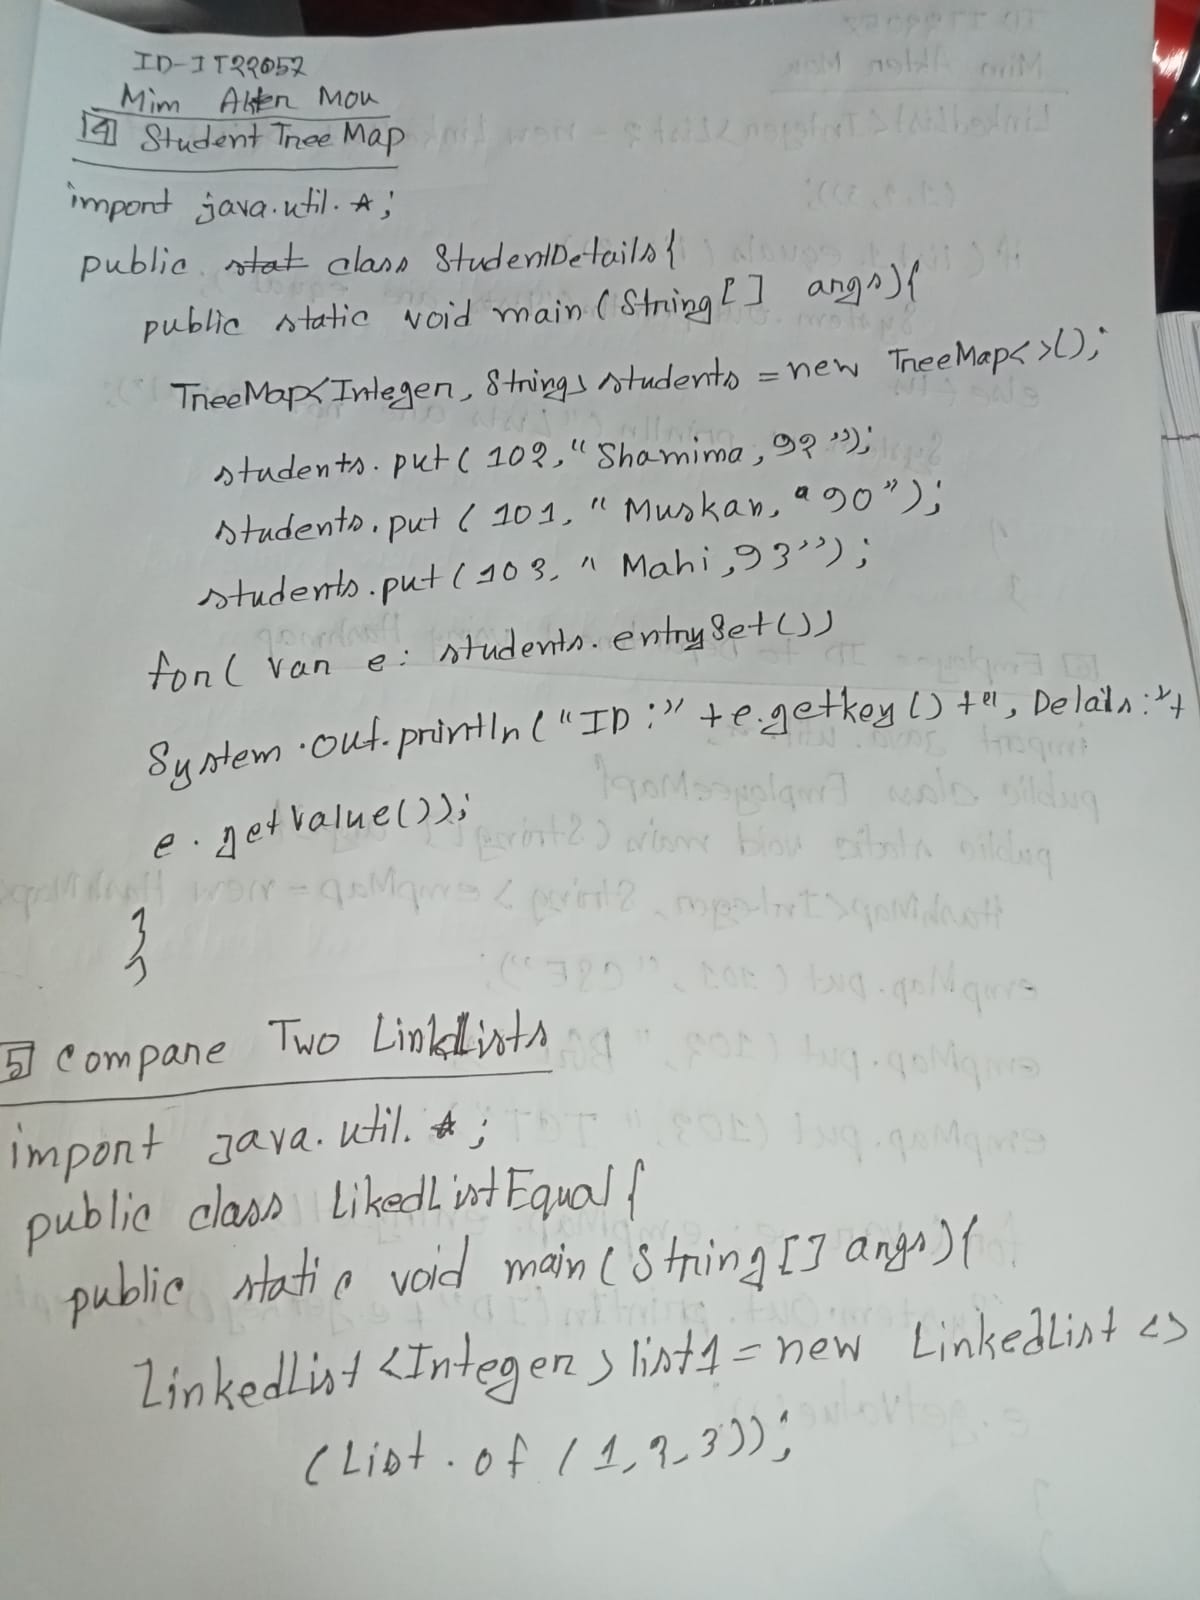 ID-IT22052
Mim Akter Mou
4 Student Tree Map
import java.util.*;
public stat class StudentDetails{
public static void main(String[] args){
TreeMap<Integer, String> students = new TreeMap<>();
students.put(102,"Shamima,92");
students.put(101,"Muskan,"90");
students.put(103,"Mahi,93");
for(var e: students.entrySet())
System.out.println("ID:"+e.getkey()+", Details:"+
e.getValue());
}
}
5 Compare Two LinkdLists
import java.util.*;
public class LikedListEqual{
public static void main(String[] args){
LinkedList<Integer> list1 = new LinkedList<>
(List.of(1,2,3));